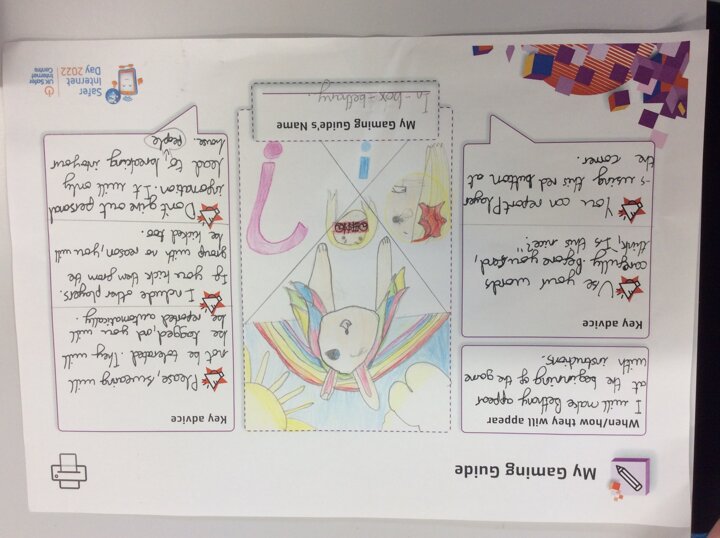 My Gaming Guide
When/how they will appear
I will make Bethany appear
at the beginning of the game
with instructions.
Key advice
Use your words
carefully. Before you send,
think, Is this nice?"
You can report Player
-s using this red button at
the corner.
My Gaming Guide's Name
In-box-bethany.
Key advice
Please, swearing will
not be tolerated. They will
be logged, ad you will
be reported automatically.
Include other players.
If you kick them from the
group with no reason, you will
be kicked too.
Don't give out personal
information. It will only
lead to people breaking into your
house.
Safer
Internet
Day 2022
UK Safer
Internet
Centre